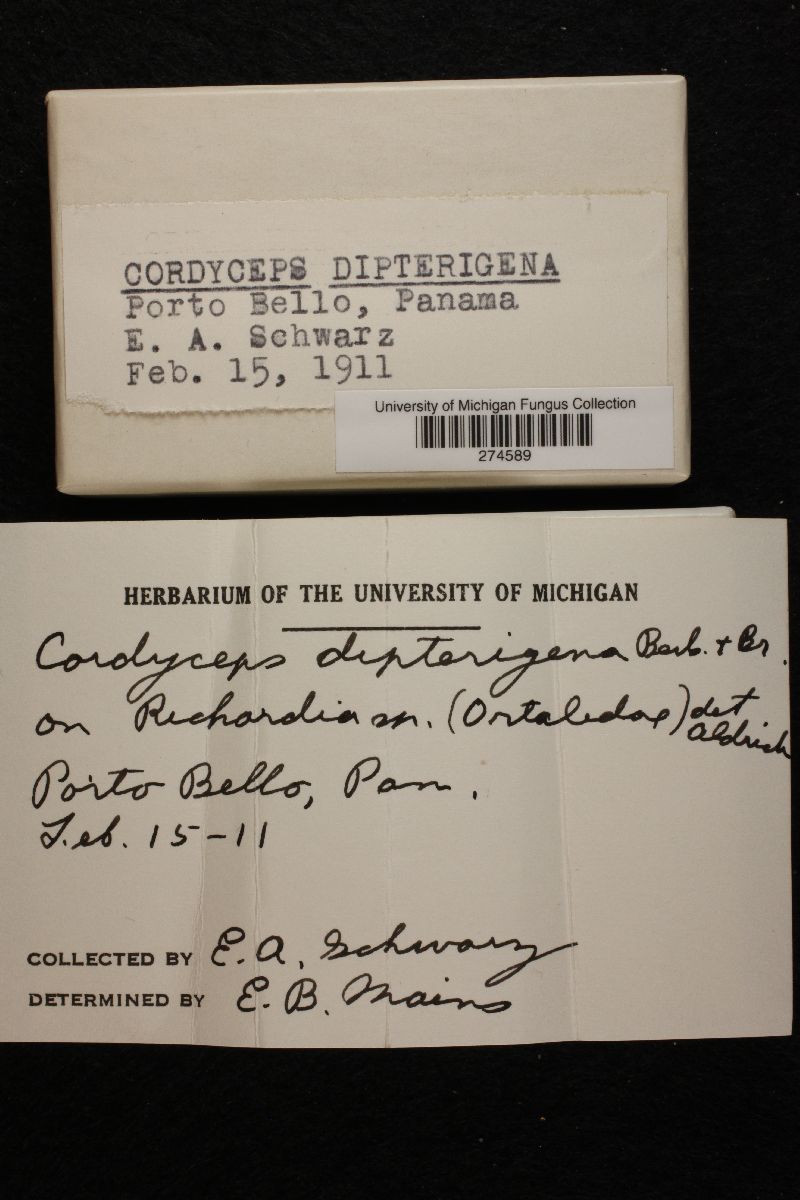 CORDYCEPS DIPTERIGENA
Porto Bello, Panama
E. A. Schwarz
Feb. 15, 1911
University of Michigan Fungus Collection
274589
HERBARIUM OF THE UNIVERSITY OF MICHIGAN
Cordyceps dipterigena Berk. + Br.
on Richardia sp. (Ortalidae) det Aldrich
Porto Bello, Pan.
Feb. 15-11
COLLECTED BY E. A. Schwarz
DETERMINED BY E. B. Mains